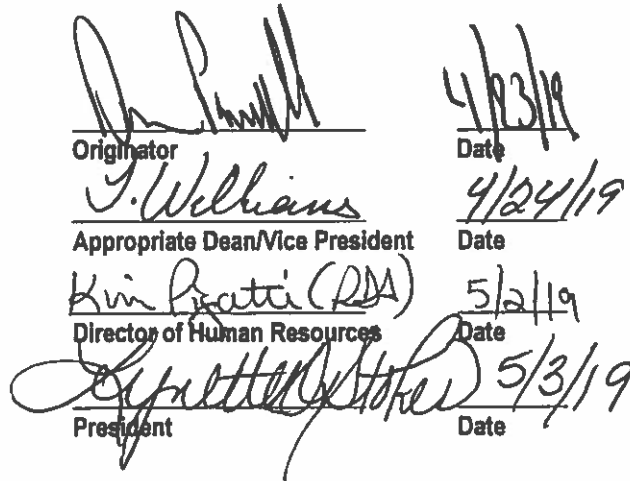 4/23/19
Originator Date
T. Williams 4/24/19
Appropriate Dean/Vice President Date
Kim (RDA) 5/2/19
Director of Human Resources Date
Lynette D. Stokes 5/3/19
President Date